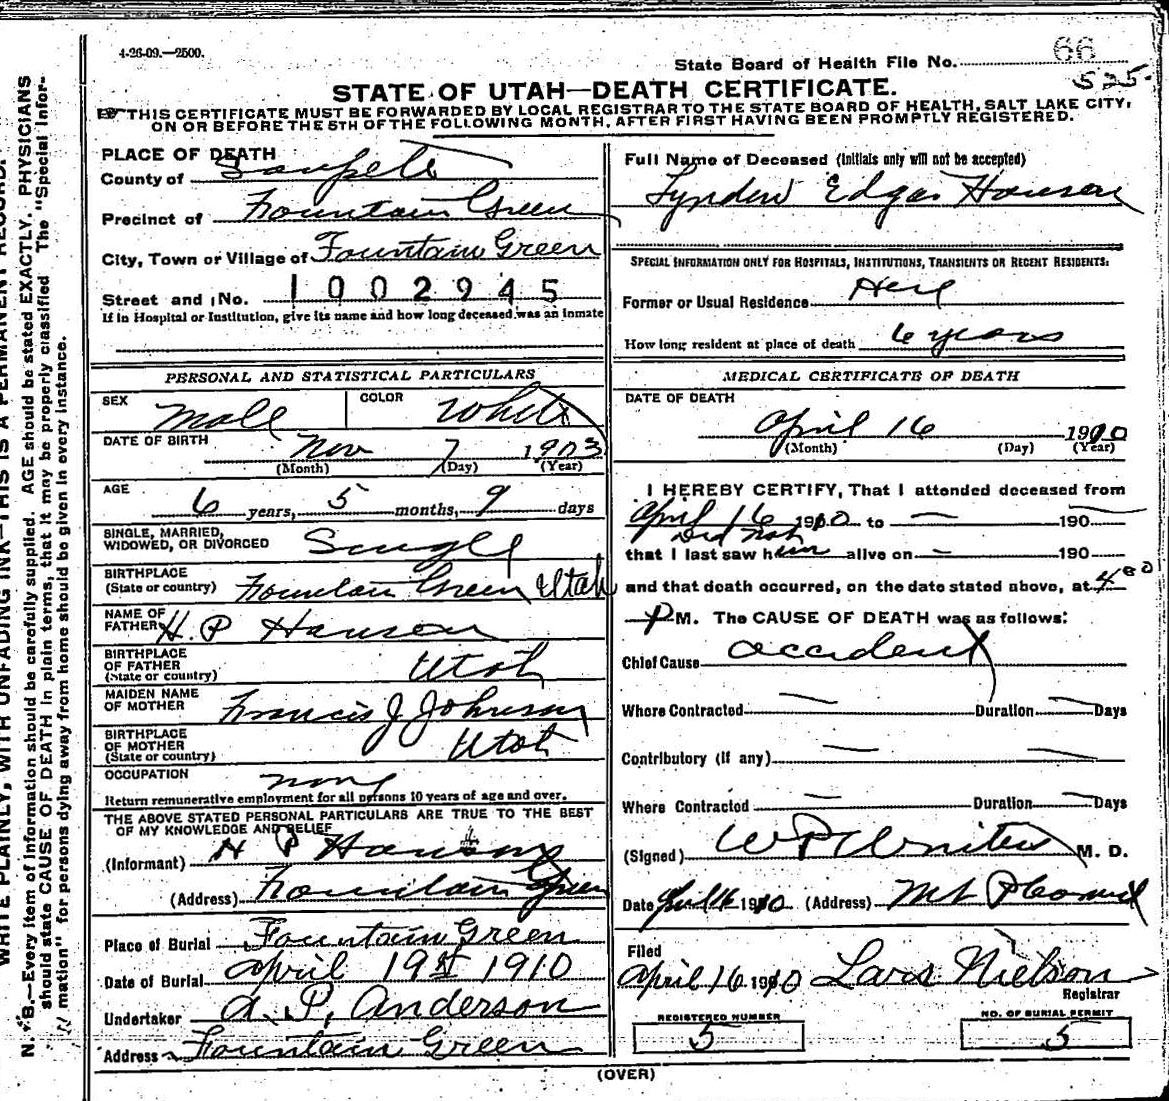 4-26-09.—2500.
State Board of Health File No. 66
525
STATE OF UTAH—DEATH CERTIFICATE.
THIS CERTIFICATE MUST BE FORWARDED BY LOCAL REGISTRAR TO THE STATE BOARD OF HEALTH, SALT LAKE CITY,
ON OR BEFORE THE 5TH OF THE FOLLOWING MONTH, AFTER FIRST HAVING BEEN PROMPTLY REGISTERED.
PLACE OF DEATH
County of Sanpete
Precinct of Fountain Green
City, Town or Village of Fountain Green
Street and No. 1002945
If in Hospital or Institution, give its name and how long deceased was an inmate
PERSONAL AND STATISTICAL PARTICULARS
SEX Male COLOR White
DATE OF BIRTH Nov 7 1903
(Month) (Day) (Year)
AGE
6 years, 5 months, 9 days
SINGLE, MARRIED,
WIDOWED, OR DIVORCED Single
BIRTHPLACE
(State or country) Fountain Green Utah
NAME OF
FATHER H. P Hansen
BIRTHPLACE
OF FATHER
(State or country) Utah
MAIDEN NAME
OF MOTHER Francis J Johnson
BIRTHPLACE
OF MOTHER
(State or country) Utah
OCCUPATION none
Return remunerative employment for all persons 10 years of age and over.
THE ABOVE STATED PERSONAL PARTICULARS ARE TRUE TO THE BEST
OF MY KNOWLEDGE AND BELIEF
(Informant) H P Hansen
(Address) Fountain Green
Place of Burial Fountain Green
Date of Burial April 19 1910
Undertaker A. P. Anderson
Address Fountain Green
Full Name of Deceased (Initials only will not be accepted)
Lynden Edgar Hansen
SPECIAL INFORMATION ONLY FOR HOSPITALS, INSTITUTIONS, TRANSIENTS OR RECENT RESIDENTS:
Former or Usual Residence Here
How long resident at place of death 6 years
MEDICAL CERTIFICATE OF DEATH
DATE OF DEATH
April 16 1910
(Month) (Day) (Year)
I HEREBY CERTIFY, That I attended deceased from
April 16 1910 to — 190 —
Did Not
that I last saw him alive on — 190
and that death occurred, on the date stated above, at 4 00
P M. The CAUSE OF DEATH was as follows:
Chief Cause accident
Where Contracted — Duration — Days
Contributory (if any) —
Where Contracted — Duration — Days
(Signed) M. D.
Date 16 1910 (Address) Mt Pleasant
Filed
April 16 1910 Lars Nielson
Registrar
REGISTERED NUMBER
5
NO. OF BURIAL PERMIT
5
(OVER)
WRITE PLAINLY, WITH UNFADING INK—THIS IS A PERMANENT RECORD.
N. B.—Every item of information should be carefully supplied. AGE should be stated EXACTLY. PHYSICIANS
should state CAUSE OF DEATH in plain terms, that it may be properly classified The "Special Infor-
mation" for persons dying away from home should be given in every instance.